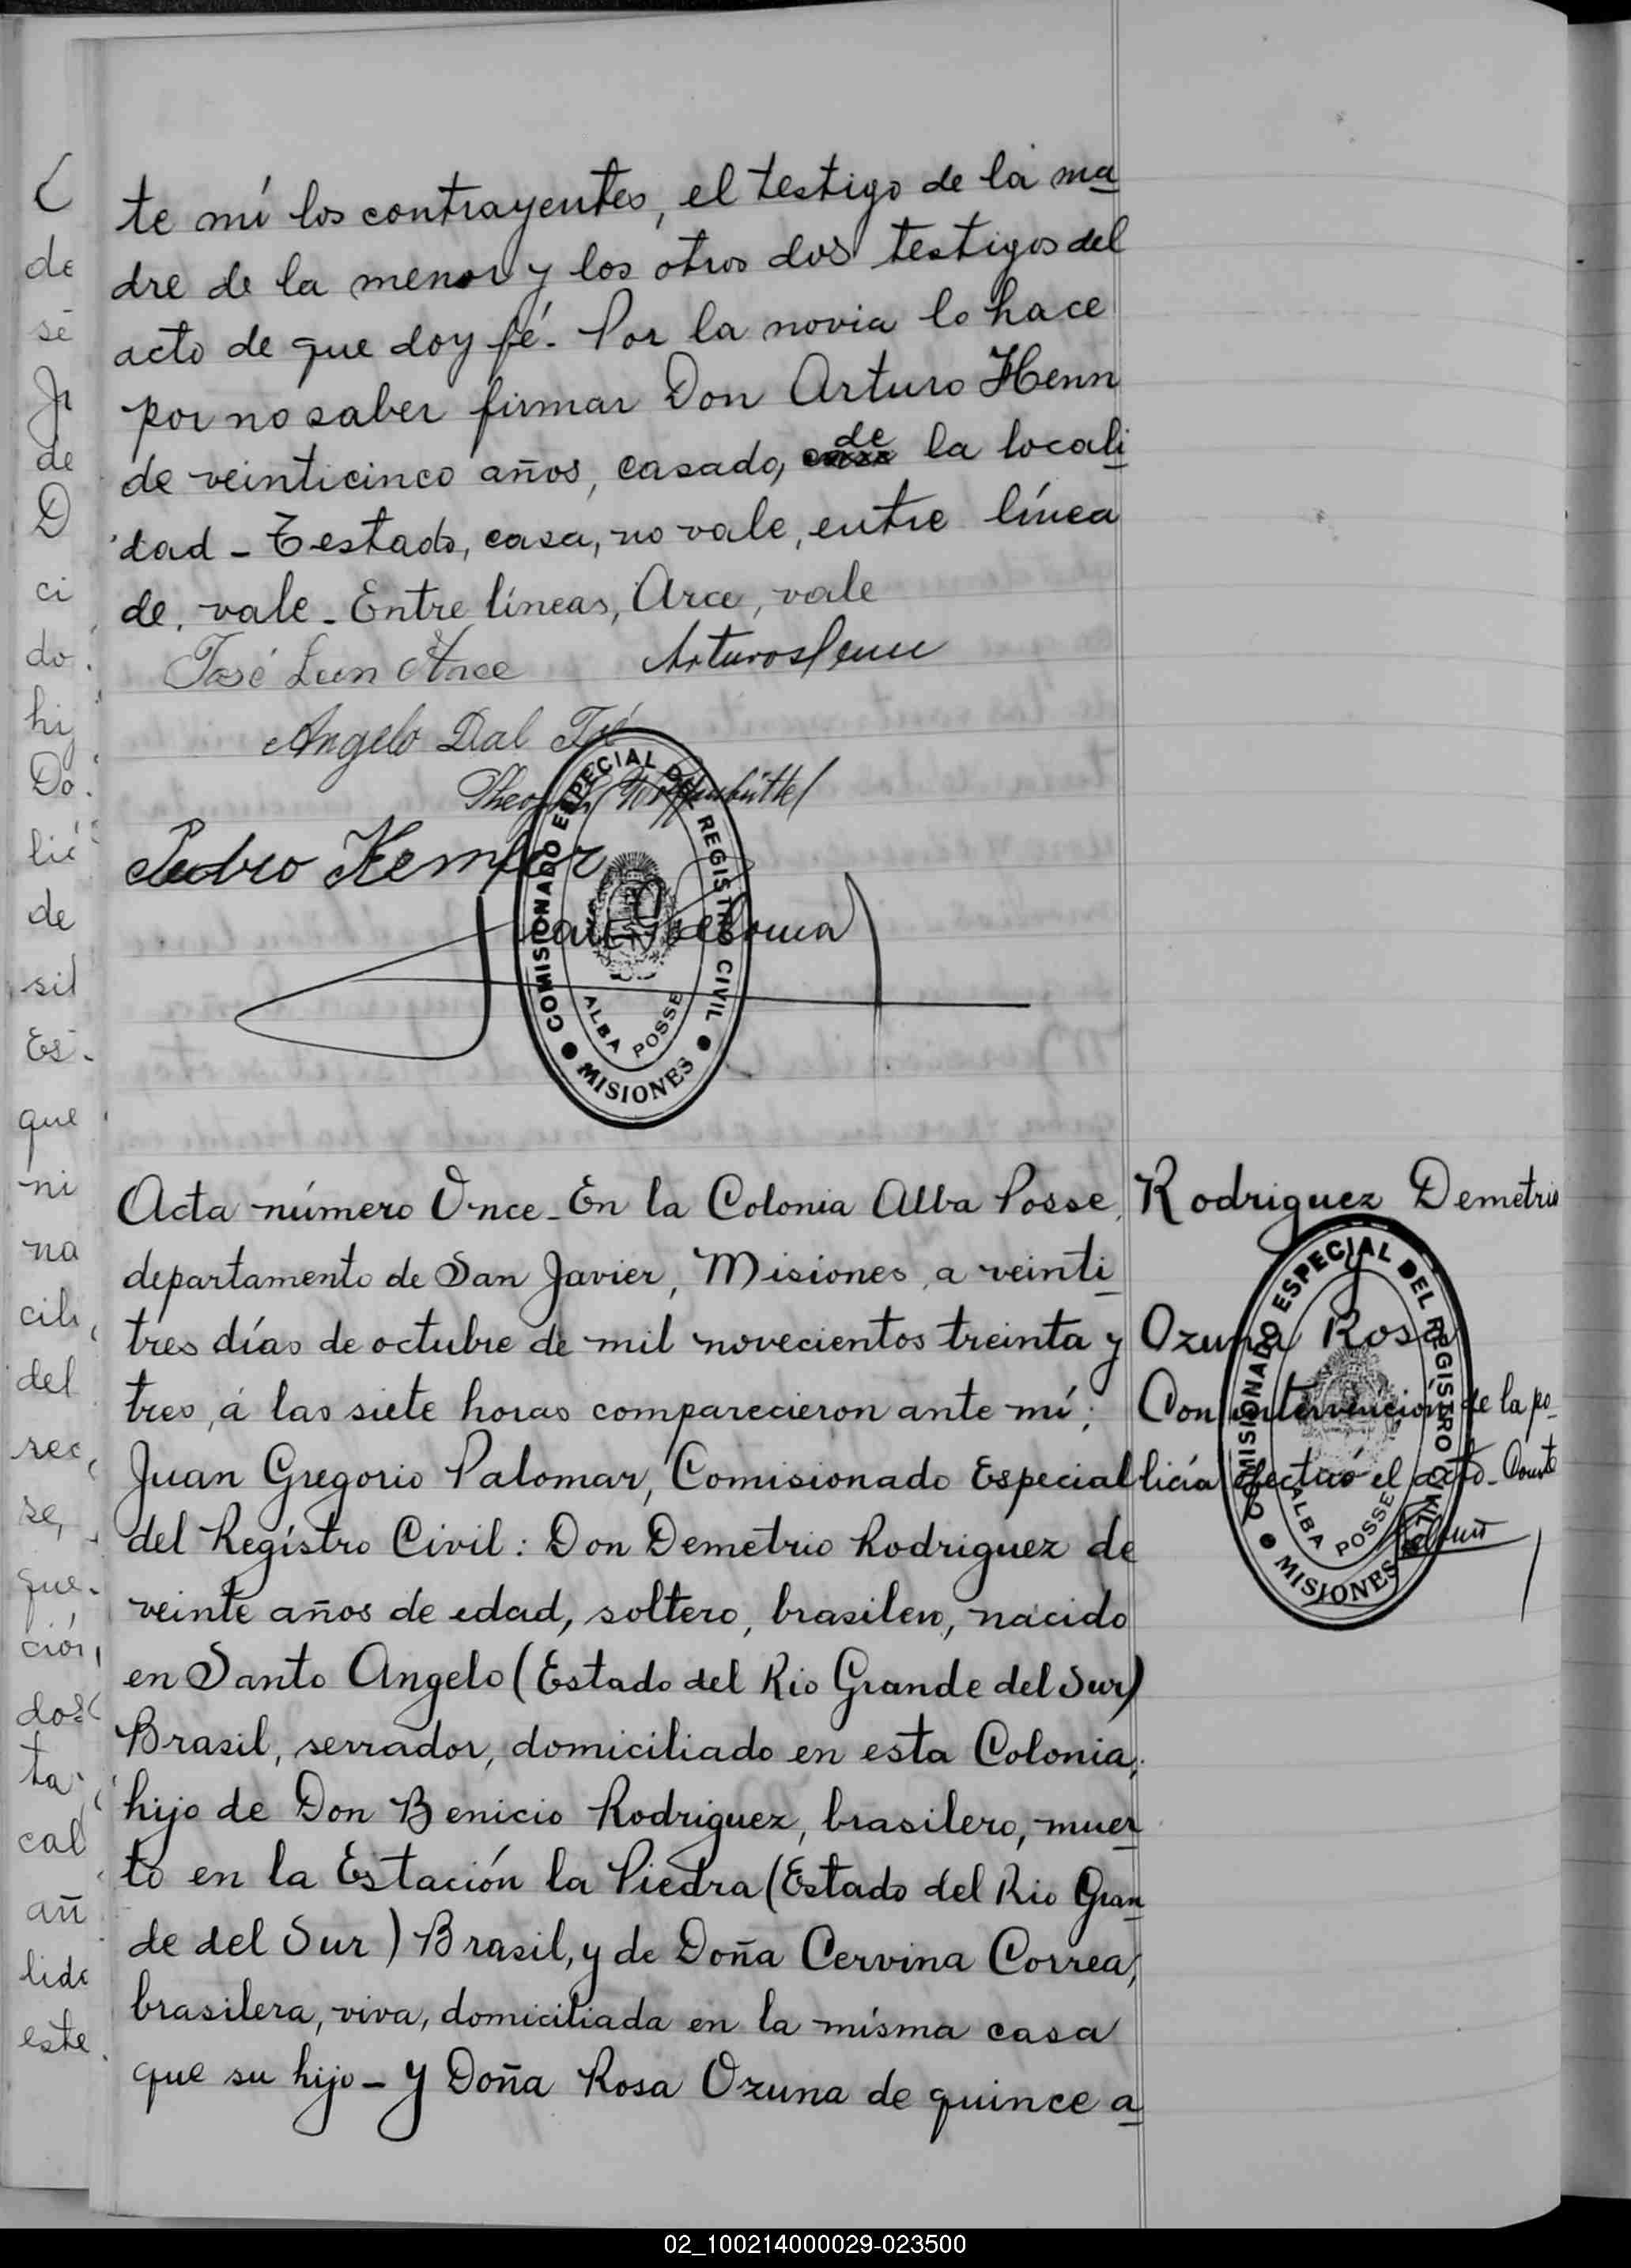 te mí los contrayentes, el testigo de la ma
dre de la menor y los otros dos testigos del
acto de que doy fé. Por la novia lo hace
por no saber firmar Don Arturo Henn
de veinticinco años, casado, casa de la locali
dad - Testado, casa, no vale, entre línea
de, vale - Entre líneas, Arce, vale
José Leon Arce
Arturo Henn
Angelo Dal
Pedro Kempfer
COMISIONADO ESPECIAL DEL REGISTRO CIVIL
ALBA POSSE
MISIONES
Acta número Once - En la Colonia Alba Posse,
departamento de San Javier, Misiones, a veinti
tres días de octubre de mil novecientos treinta y
tres, á las siete horas comparecieron ante mí;
Juan Gregorio Palomar, Comisionado Especial
del Regístro Civil: Don Demetrio Rodriguez de
veinte años de edad, soltero, brasilero, nacido
en Santo Angelo (Estado del Rio Grande del Sur)
Brasil, serrador, domiciliado en esta Colonia,
hijo de Don Benicio Rodriguez, brasilero, muer
to en la Estación la Piedra (Estado del Rio Gran
de del Sur) Brasil, y de Doña Cervina Correa,
brasilera, viva, domiciliada en la mísma casa
que su hijo - y Doña Rosa Ozuna de quince a
Rodriguez Demetrio
y
Ozuna Rosa
Con intervención de la po-
licía efectuó el acto - Conste
COMISIONADO ESPECIAL DEL REGISTRO CIVIL
ALBA POSSE
MISIONES
de
sé
de
D
ci
do
hi
Do
lié
de
sil
Es
que
ni
na
cili
del
rec
se,
que
ción
dos
ta
cal
añ
lida
este
02_100214000029-023500